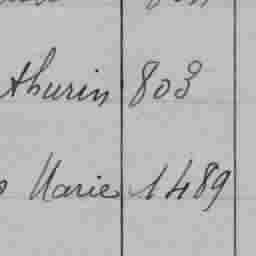 thurin 803
Marie 1489